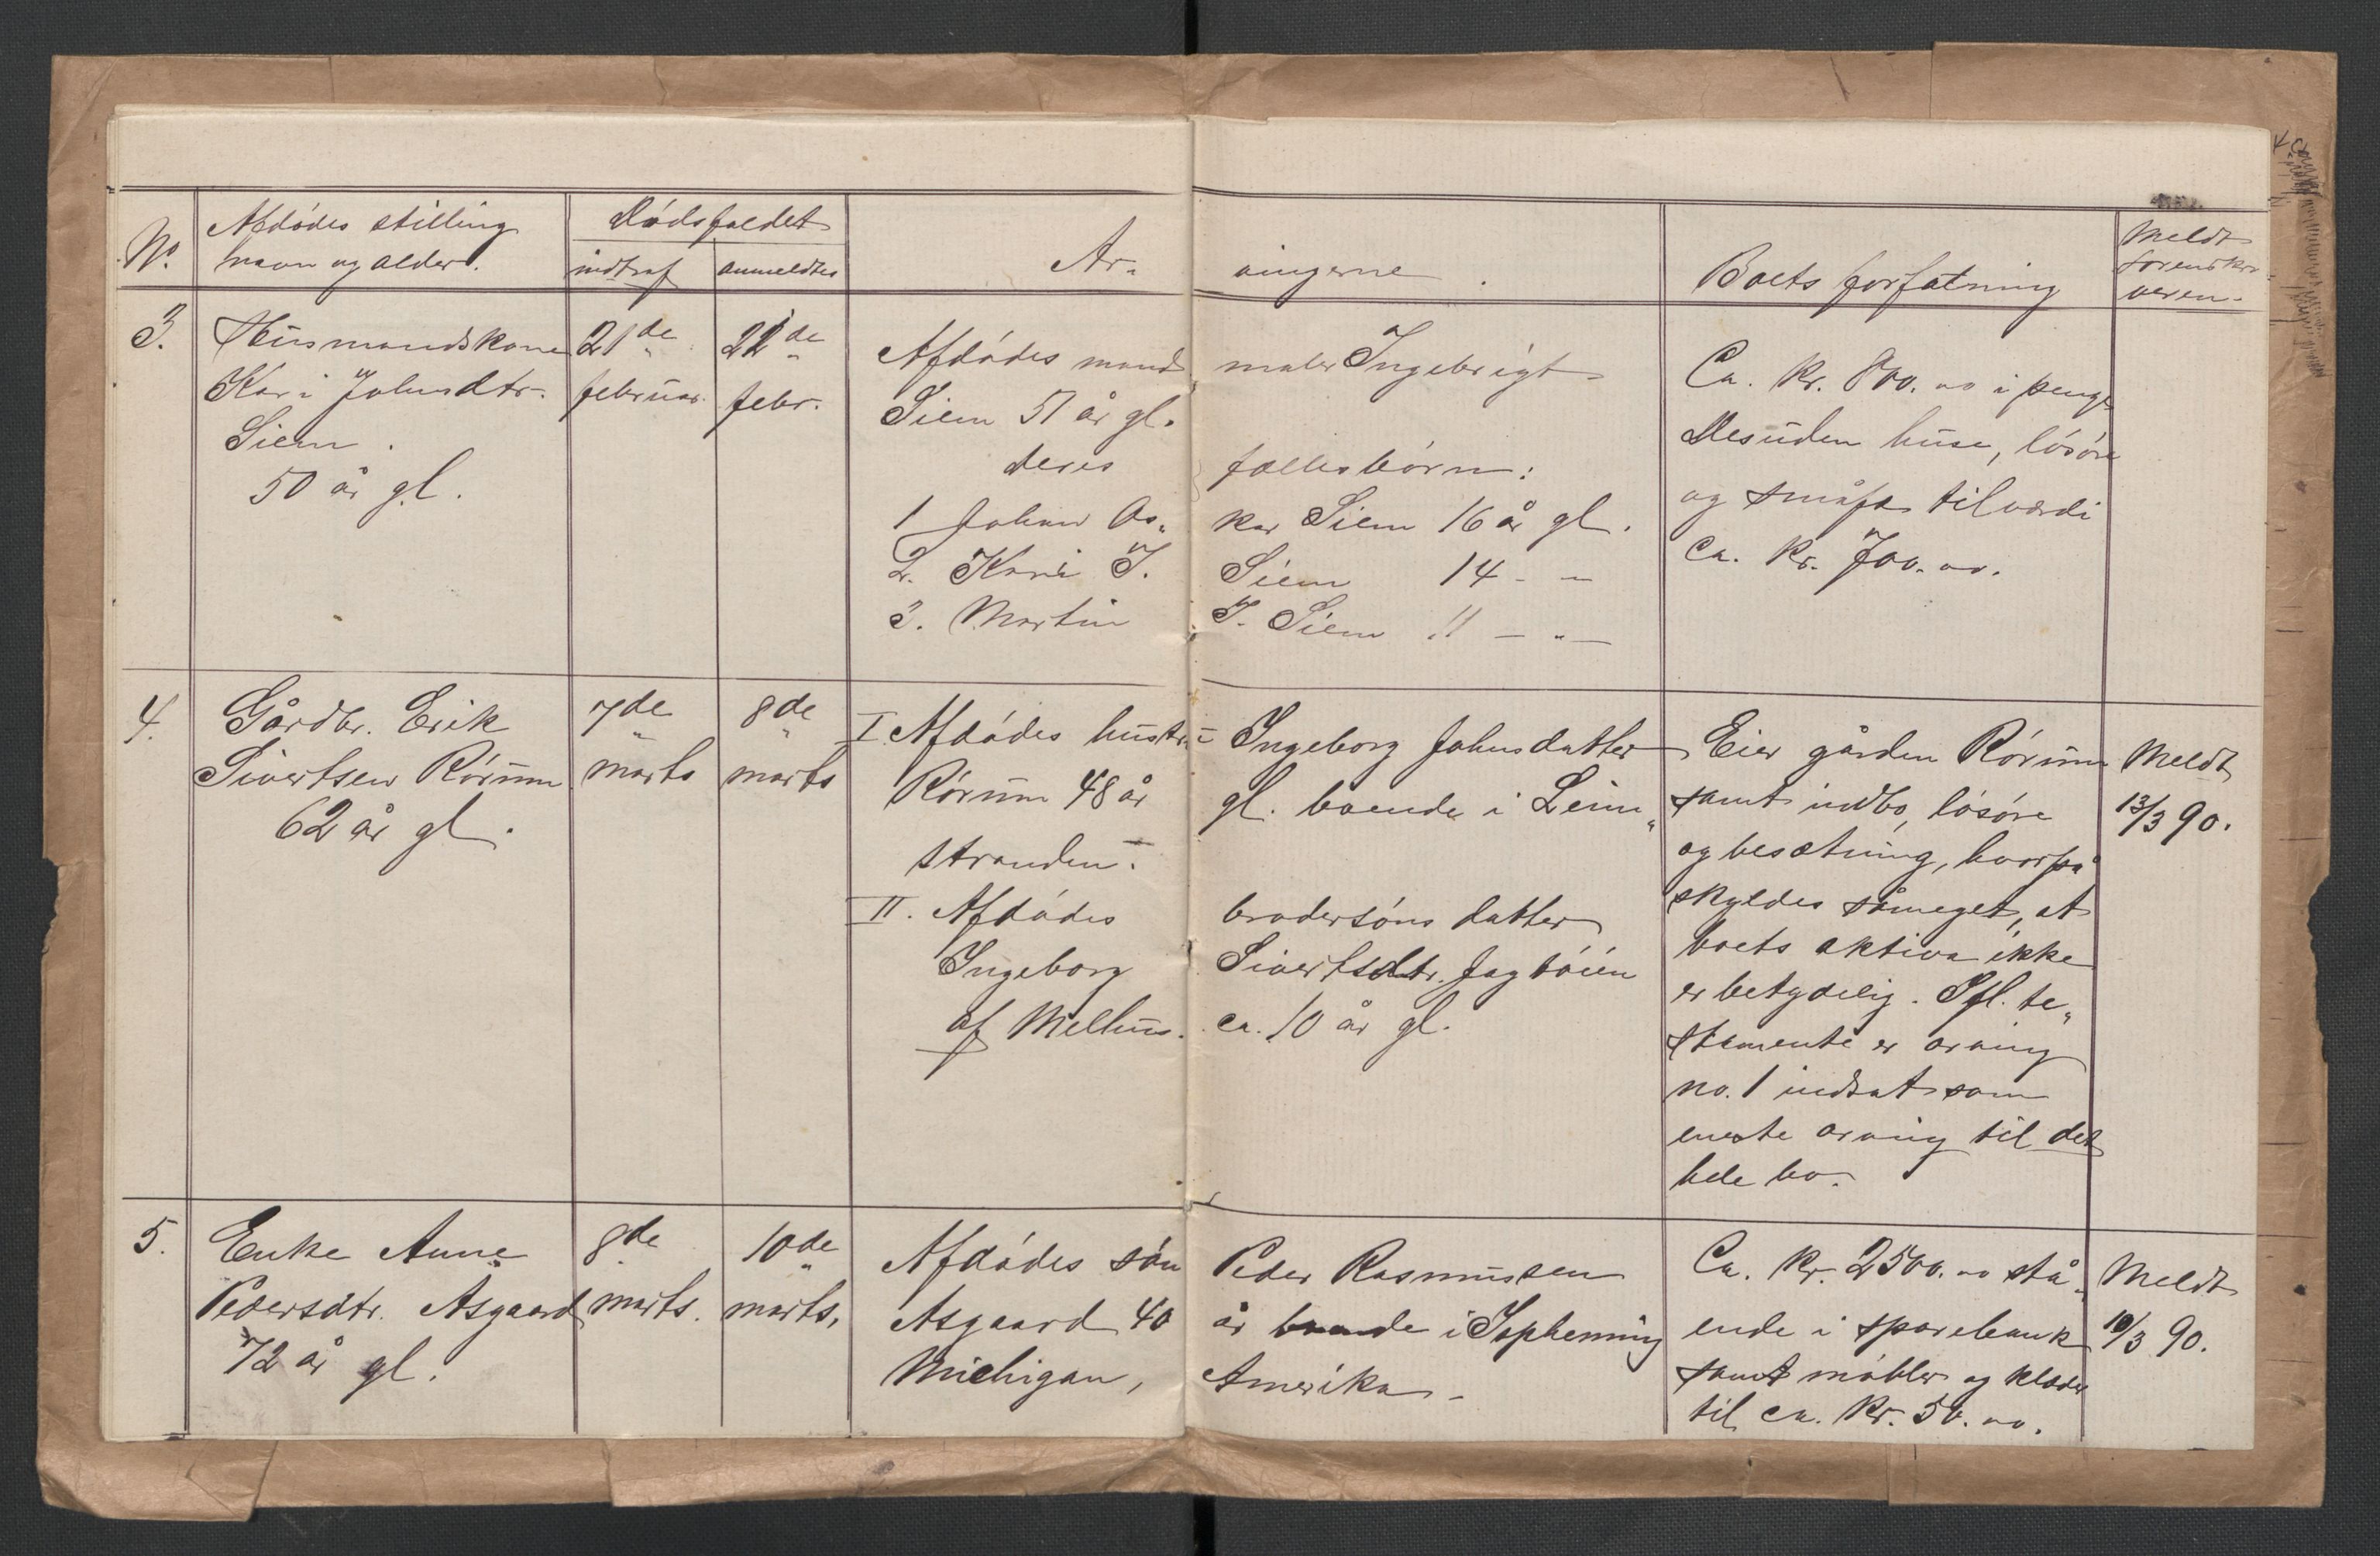 No. Afdødes stilling navn og alder. Dødsfaldet indtraf anmeldtes Ar- vingerne. Boets forfatning Meldt sorenskri- veren.
3. Husmandskone 21de 22de Afdødes mand maler Ingebrigt Ca. Kr. 800.00 i penge
Kari Johnsdtr. februar. febr. Siem 51 år gl. Desuden huse, løsøre
Siem. deres fællesbørn: og småfæ til værdi
50 år gl. 1 Johan Os„ kar Siem 16 år gl. ca. Kr. 700.00.
2. Kari I. Siem 14 - -
3. Martin I. Siem 11 - „ -
4. Gårdbr. Erik 7de 8de I. Afdødes hustru Ingeborg Johnsdatter Eier gården Rørum Meldt
Sivertsen Rørum marts marts Rørum 48 år gl. boende i Lein„ samt indbo, løsøre 13/3 90.
62 år gl. stranden. og besætning, hvorpå
II. Afdødes brodersøns datter skyldes såmeget, at
Ingeborg Sivertsdtr. Jagtøien boets aktiva ikke
af Melhus. ca. 10 år gl. er betydelig. Ifl. te„
stamente er arving
no. 1 indsat som
eneste arving til det
hele bo.
5. Enke Anne 8de 10de Afdødes søn Peder Rasmussen Ca. Kr. 2500.00 stå„ Meldt
Pedersdtr. Asgaard marts. marts. Asgaard 40 år boende i ende i sparebank 10/3 90.
72 år gl. Michigan, Amerika. samt møbler og klæder
til ca. Kr. 50.00.